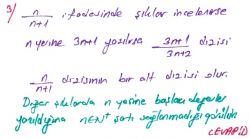 3/ n/n+1 ifadesinde şıklar incelenirse
n yerine 3n+1 yazılırsa 3n+1/3n+2 dizisi
n/n+1 dizisinin bir alt dizisi olur.
Diğer şıklarda n yerine başka değerler
yazıldığına n∈N⁺ şartı sağlanmadığı görülür.
CEVAP:D